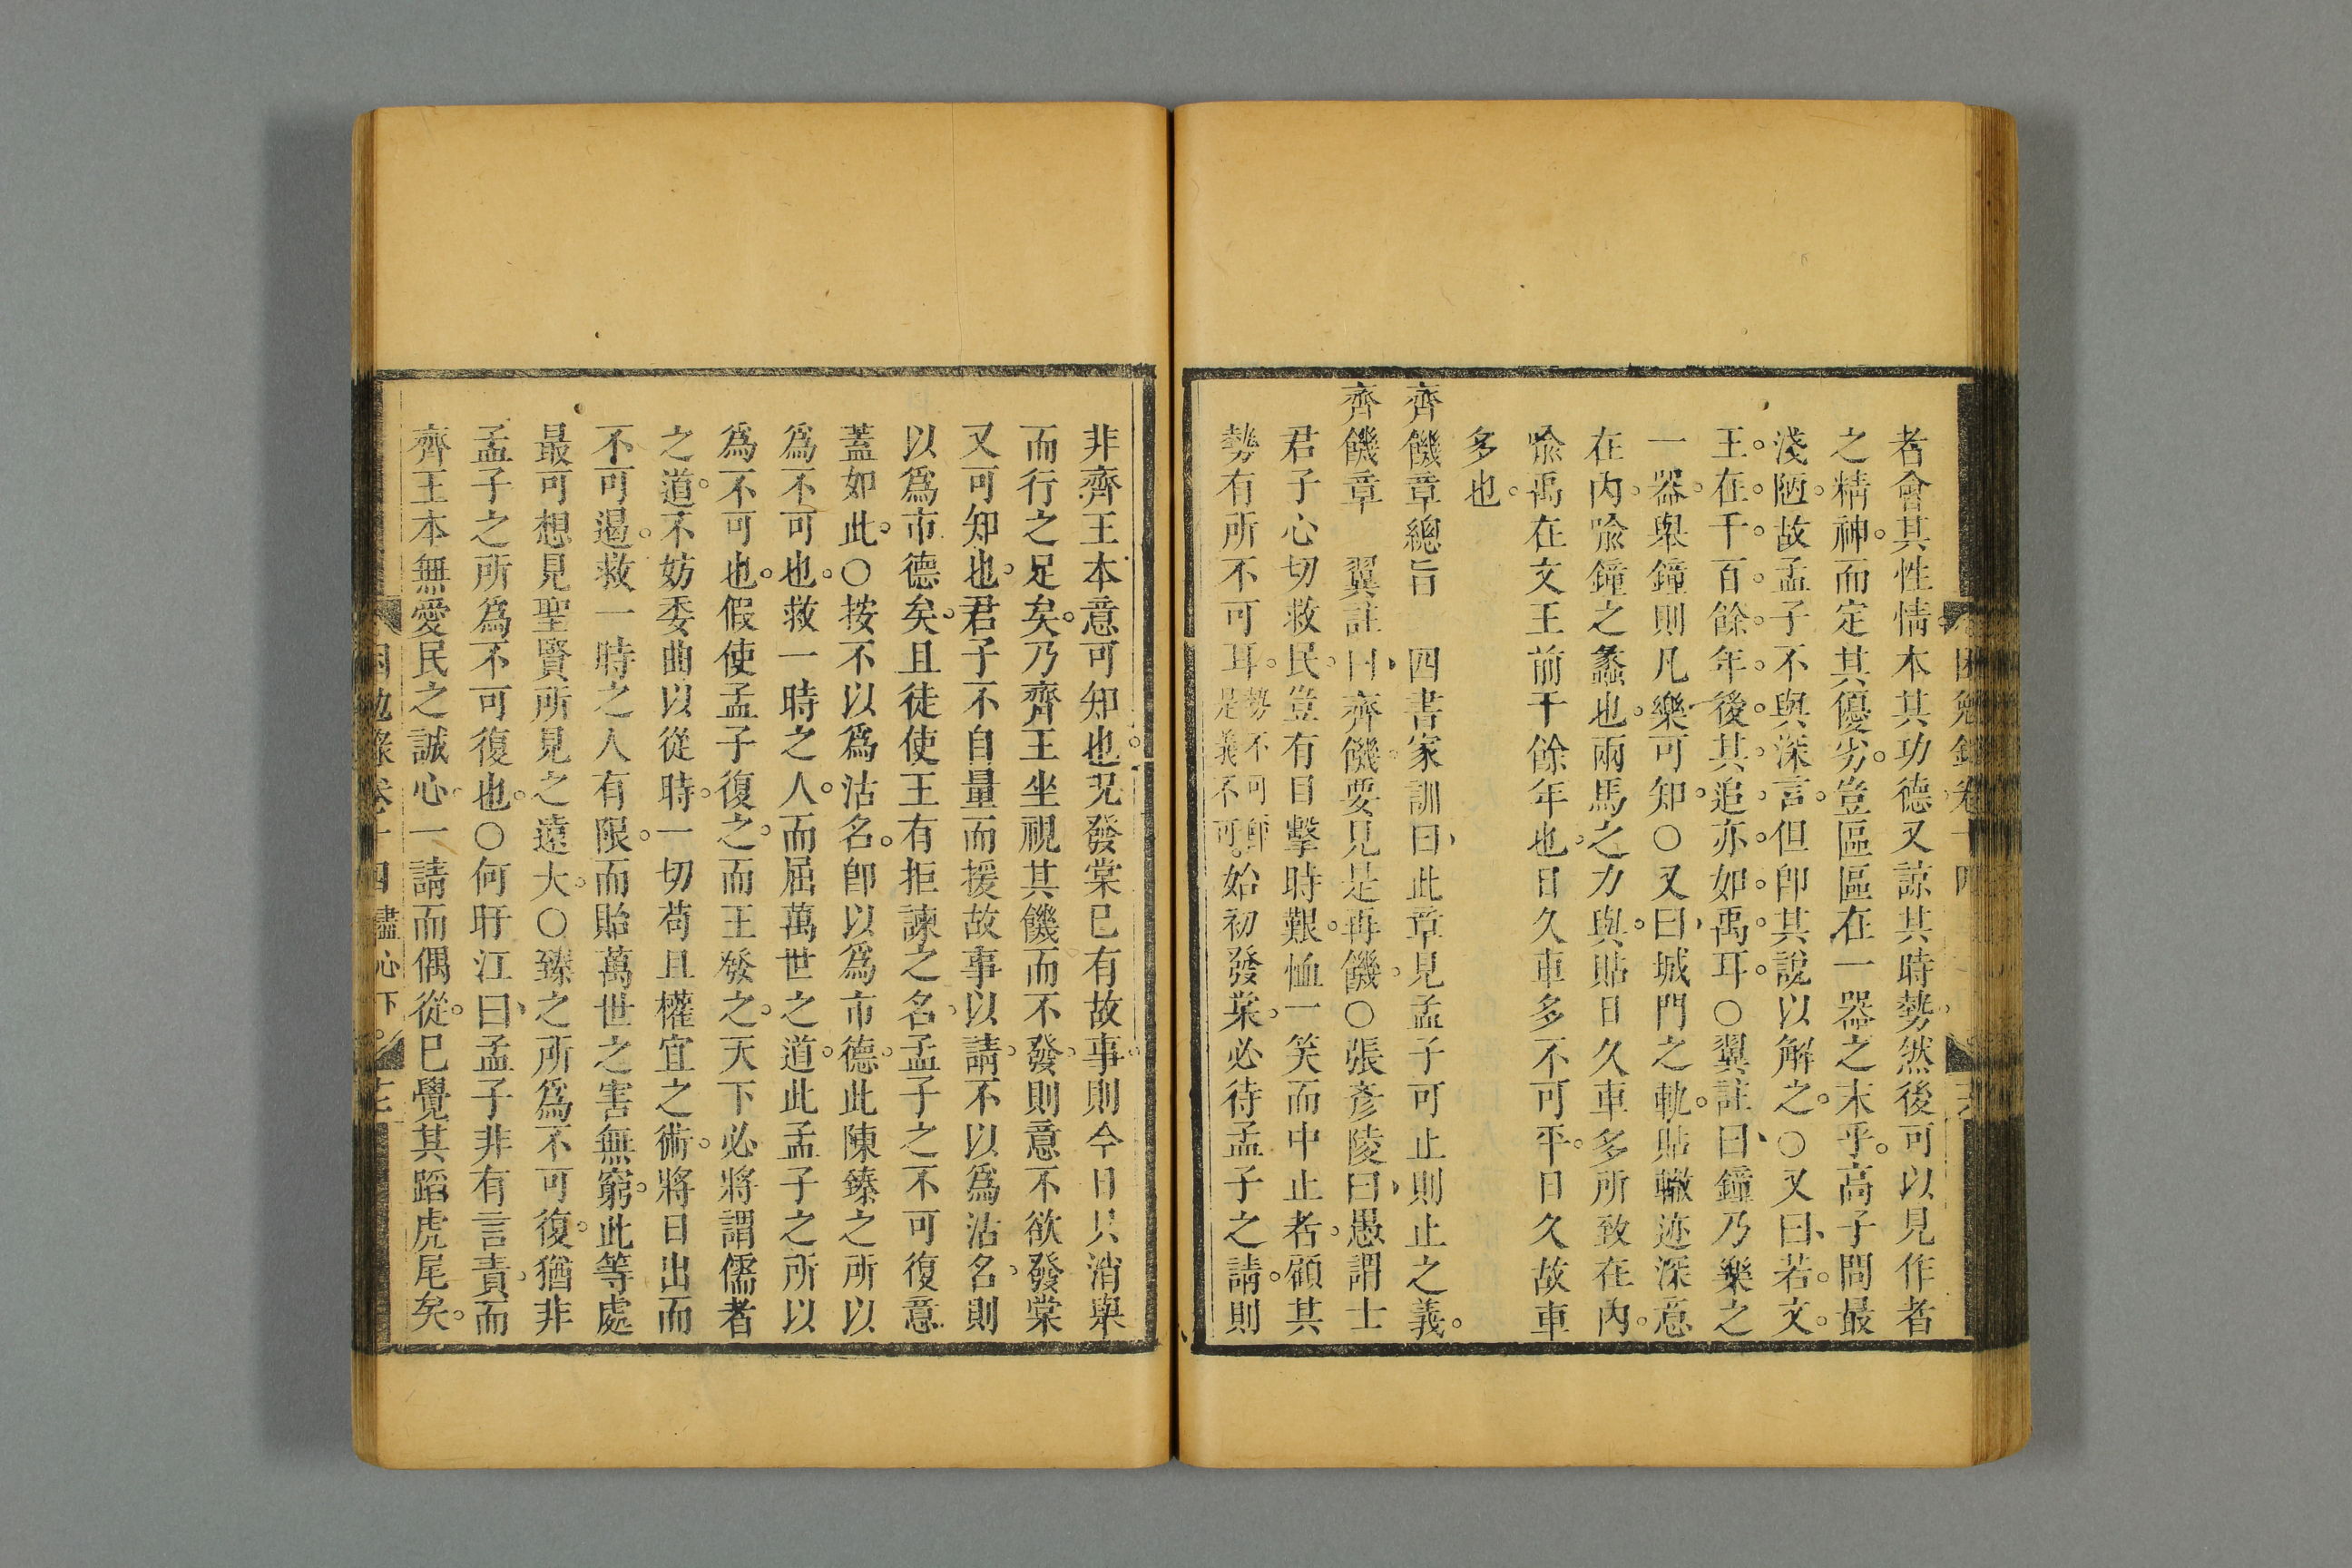 者會其性情。本其功德。又諒其時勢。然後可以見作者
之精神。而定其優劣。豈區區在一器之末乎。高子問最
淺陋。故孟子不與深言。但卽其說以解之。○又曰、若。文。
王。在。千。百。餘。年。後。其。追。亦。如。禹。耳。○翼註曰、鐘乃樂之
一器。舉鐘則凡樂可知。○又曰、城門之軌。貼轍迹深意
在內。喩鐘之蠡也。兩馬之力與。貼日久車多所致在內。
喩禹在文王前千餘年也。日久車多不可平。日久故車
多也。
齊饑章總旨　四書家訓曰、此章見孟子可止則止之義。
齊饑章　翼註曰、齊饑。要見是再饑。○張彥陵曰、愚謂士
君子心切救民。豈有目擊時艱。恤一笑而中止者。顧其
勢有所不可耳。勢不可卽是義不可。始初發棠。必待孟子之請。則
非齊王本意可知也。况發棠已有故事。則今日只消舉
而行之足矣。乃齊王坐視其饑而不發。則意不欲發棠
又可知也。君子不自量而援故事以請。不以爲沽名。則
以爲市德矣。且徒使王有拒諫之名。孟子之不可復意
蓋如此。○按不以爲沽名。卽以爲市德。此陳臻之所以
爲不可也。救一時之人。而屈萬世之道。此孟子之所以
爲不可也。假使孟子復之。而王發之。天下必將謂儒者
之道。不妨委曲以從時。一切苟且權宜之術。將日出而
不可遏。救一時之人有限。而貽萬世之害無窮。此等處
最可想見聖賢所見之遠大。○臻之所爲不可復。猶非
孟子之所爲不可復也。○何旴江曰、孟子非有言責。而
齊王本無愛民之誠心。一請而偶從。已覺其蹈虎尾矣。
困勉錄卷十四 盡心下。